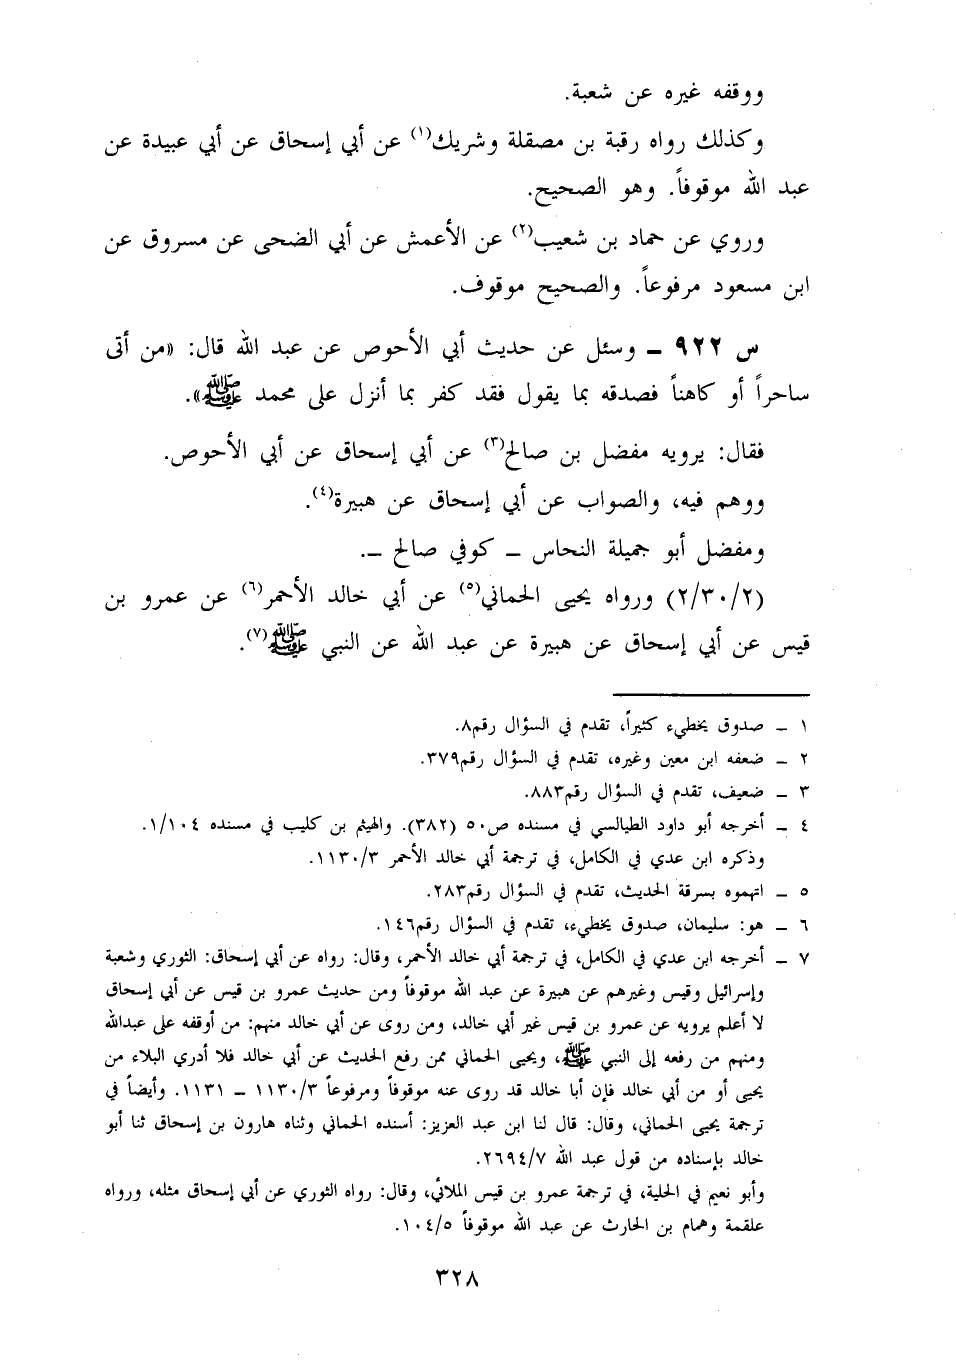 ووقفه غيره عن شعبة.
وكذلك رواه رقبة بن مصقلة وشريك(١) عن أبي إسحاق عن أبي عبيدة عن
عبد الله موقوفاً. وهو الصحيح.
وروي عن حماد بن شعيب(٢) عن الأعمش عن أبي الضحى عن مسروق عن
ابن مسعود مرفوعاً. والصحيح موقوف.
س ٩٢٢ ـ وسئل عن حديث أبي الأحوص عن عبد الله قال: «من أتى
ساحراً أو كاهناً فصدقه بما يقول فقد كفر بما أنزل على محمد ﷺ».
فقال: يرويه مفضل بن صالح(٣) عن أبي إسحاق عن أبي الأحوص.
ووهم فيه، والصواب عن أبي إسحاق عن هبيرة(٤).
ومفضل أبو جميلة النحاس ـ كوفي صالح ـ.
(٢/٣٠/٢) ورواه يحيى الحماني(٥) عن أبي خالد الأحمر(٦) عن عمرو بن
قيس عن أبي إسحاق عن هبيرة عن عبد الله عن النبي ﷺ(٧).
١ ـ صدوق يخطيء كثيراً، تقدم في السؤال رقم٨.
٢ ـ ضعفه ابن معين وغيره، تقدم في السؤال رقم٣٧٩.
٣ ـ ضعيف، تقدم في السؤال رقم٨٨٣.
٤ ـ أخرجه أبو داود الطيالسي في مسنده ص٥٠ (٣٨٢). والهيثم بن كليب في مسنده ١/١٠٤.
وذكره ابن عدي في الكامل، في ترجمة أبي خالد الأحمر ١١٣٠/٣.
٥ ـ اتهموه بسرقة الحديث، تقدم في السؤال رقم٢٨٣.
٦ ـ هو: سليمان، صدوق يخطيء، تقدم في السؤال رقم١٤٦.
٧ ـ أخرجه ابن عدي في الكامل، في ترجمة أبي خالد الأحمر، وقال: رواه عن أبي إسحاق: الثوري وشعبة
وإسرائيل وقيس وغيرهم عن هبيرة عن عبد الله موقوفاً ومن حديث عمرو بن قيس عن أبي إسحاق
لا أعلم يرويه عن عمرو بن قيس غير أبي خالد، ومن روى عن أبي خالد منهم: من أوقفه على عبدالله
ومنهم من رفعه إلى النبي ﷺ، ويحيى الحماني ممن رفع الحديث عن أبي خالد فلا أدري البلاء من
يحيى أو من أبي خالد فإن أبا خالد قد روى عنه موقوفاً ومرفوعاً ١١٣٠/٣ ـ ١١٣١. وأيضاً في
ترجمة يحيى الحماني، وقال: قال لنا ابن عبد العزيز: أسنده الحماني وثناه هارون بن إسحاق ثنا أبو
خالد بإسناده من قول عبد الله ٢٦٩٤/٧.
وأبو نعيم في الحلية، في ترجمة عمرو بن قيس الملائي، وقال: رواه الثوري عن أبي إسحاق مثله، ورواه
علقمة وهمام بن الحارث عن عبد الله موقوفاً ١٠٤/٥.
٣٢٨